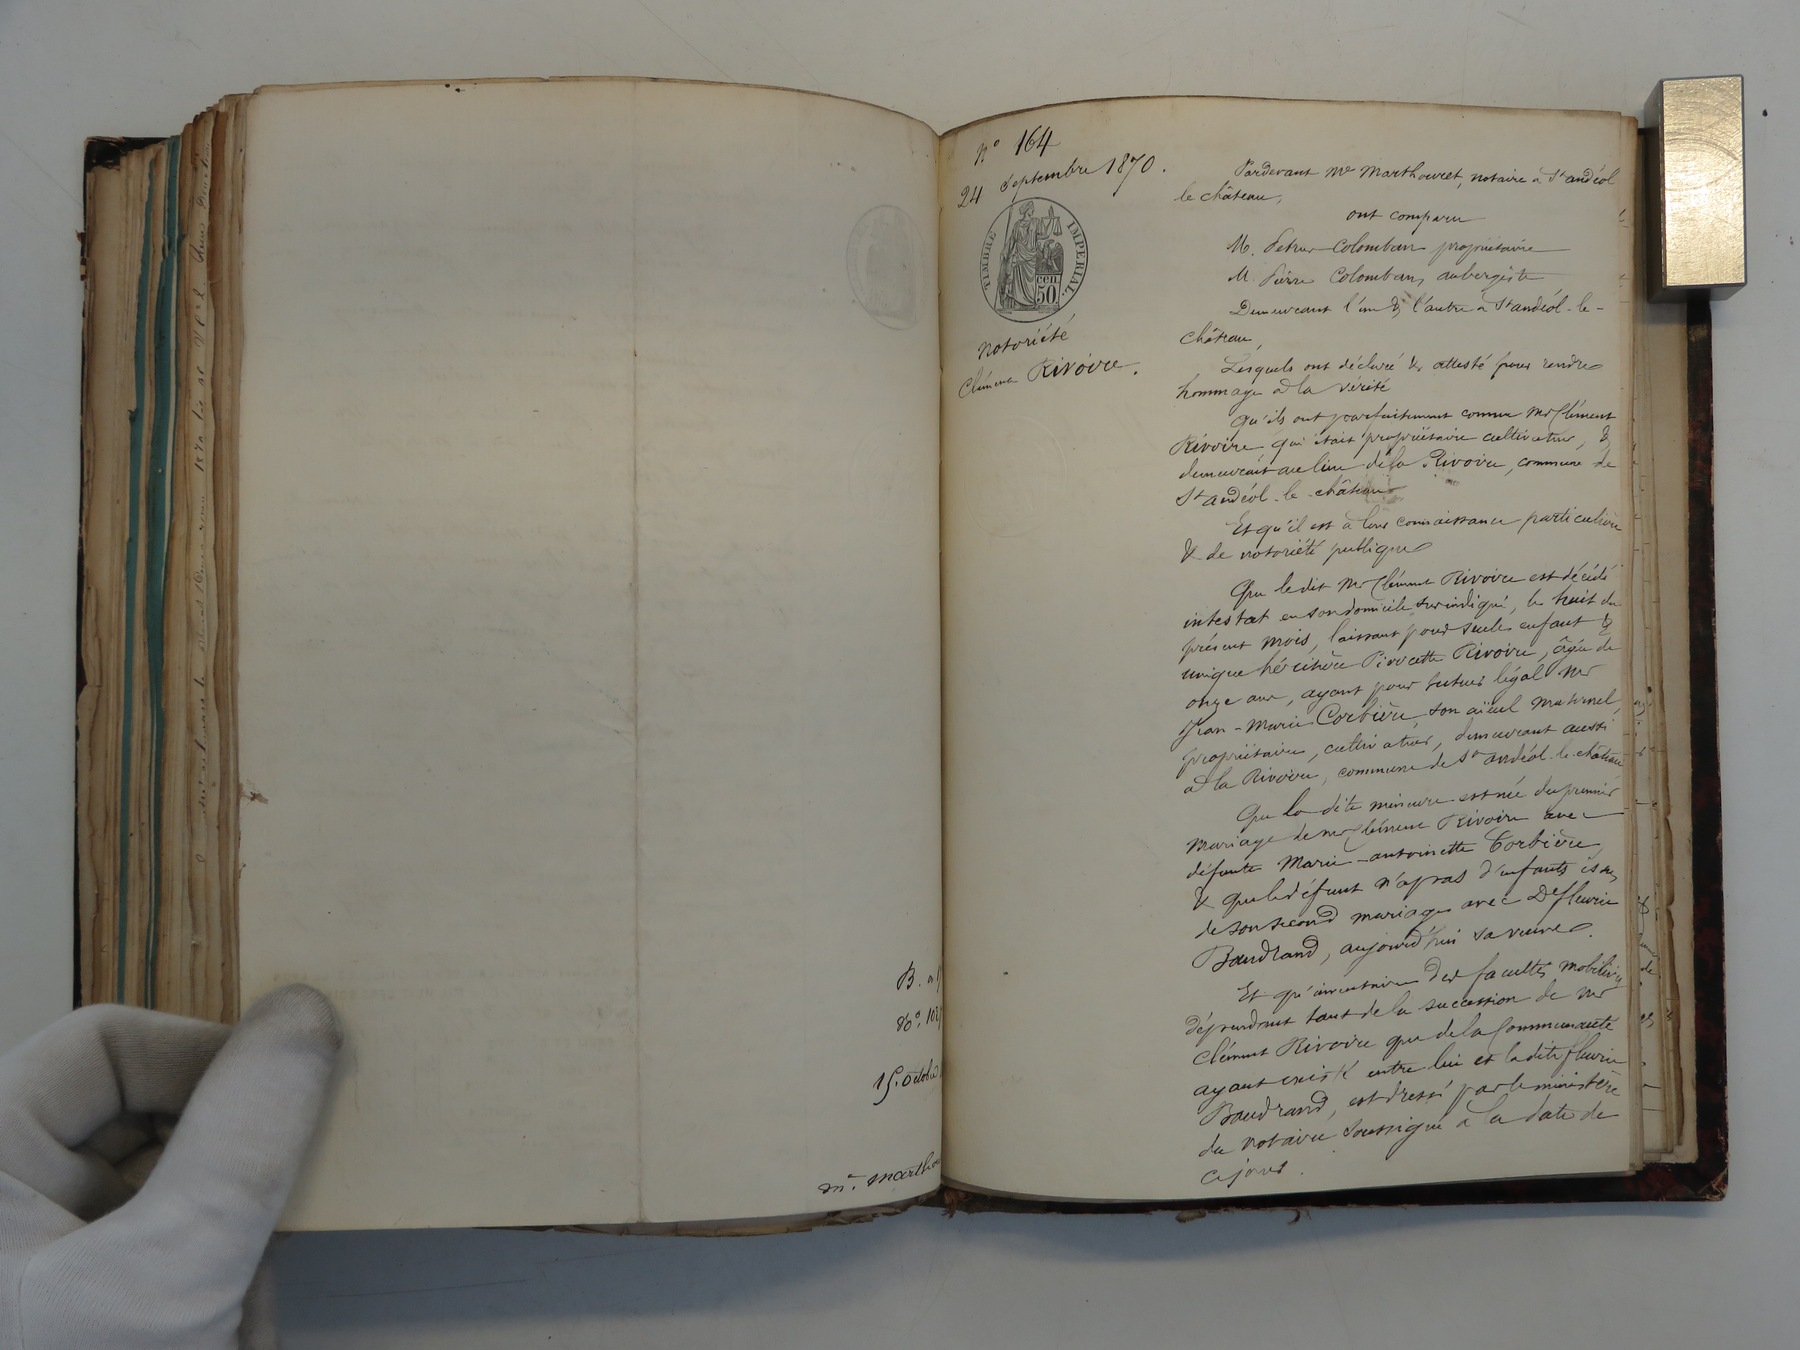 B. a
15. octobre
me. marthou
N° 164
24 Septembre 1870.
TIMBRE IMPERIAL.
50 cen
notoriété
Clément Rivoire.
Pardevant Me Marthouret, notaire à St andéol
le château,
ont comparu
M. Petrus Colomban propriétaire
M. Pierre Colomban, aubergiste
Demeurant l'un & l'autre à St andéol-le-
château,
Lesquels ont déclaré & attesté pour rendre
hommage à la vérité
Qu'ils ont parfaitement connu Mr Clément
Rivoire qui était propriétaire cultivateur, &
demeurait au lieu de la Rivoire, commune de
St andéol-le-château
Et qu'il est à leur connaissance particulière
& de notoriété publique
Que le dit Mr Clément Rivoire est décédé
intestat en son domicile susindiqué, le huit du
présent mois, laissant pour seule enfant &
unique héritière Pierrette Rivoire, âgée de
onze ans, ayant pour tuteur légal Mr
Jean-Marie Corbière, son aïeul maternel,
propriétaire, cultivateur, demeurant aussi
à la Rivoire, commune de St andéol-le-château
Que la dite mineure est née du premier
mariage de Mr Clément Rivoire avec
défunte Marie-antoinette Corbière,
& que le défunt n'a pas d'enfants issus
de son second mariage avec De fleurie
Baudrand, aujourd'hui sa veuve.
Et qu'inventaire des facultés mobilières
dépendant tant de la succession de Mr
Clément Rivoire que de la communauté
ayant existé entre lui et ladite fleurie
Baudrand, est dressé par le ministère
du notaire soussigné à la date de
ce jour.